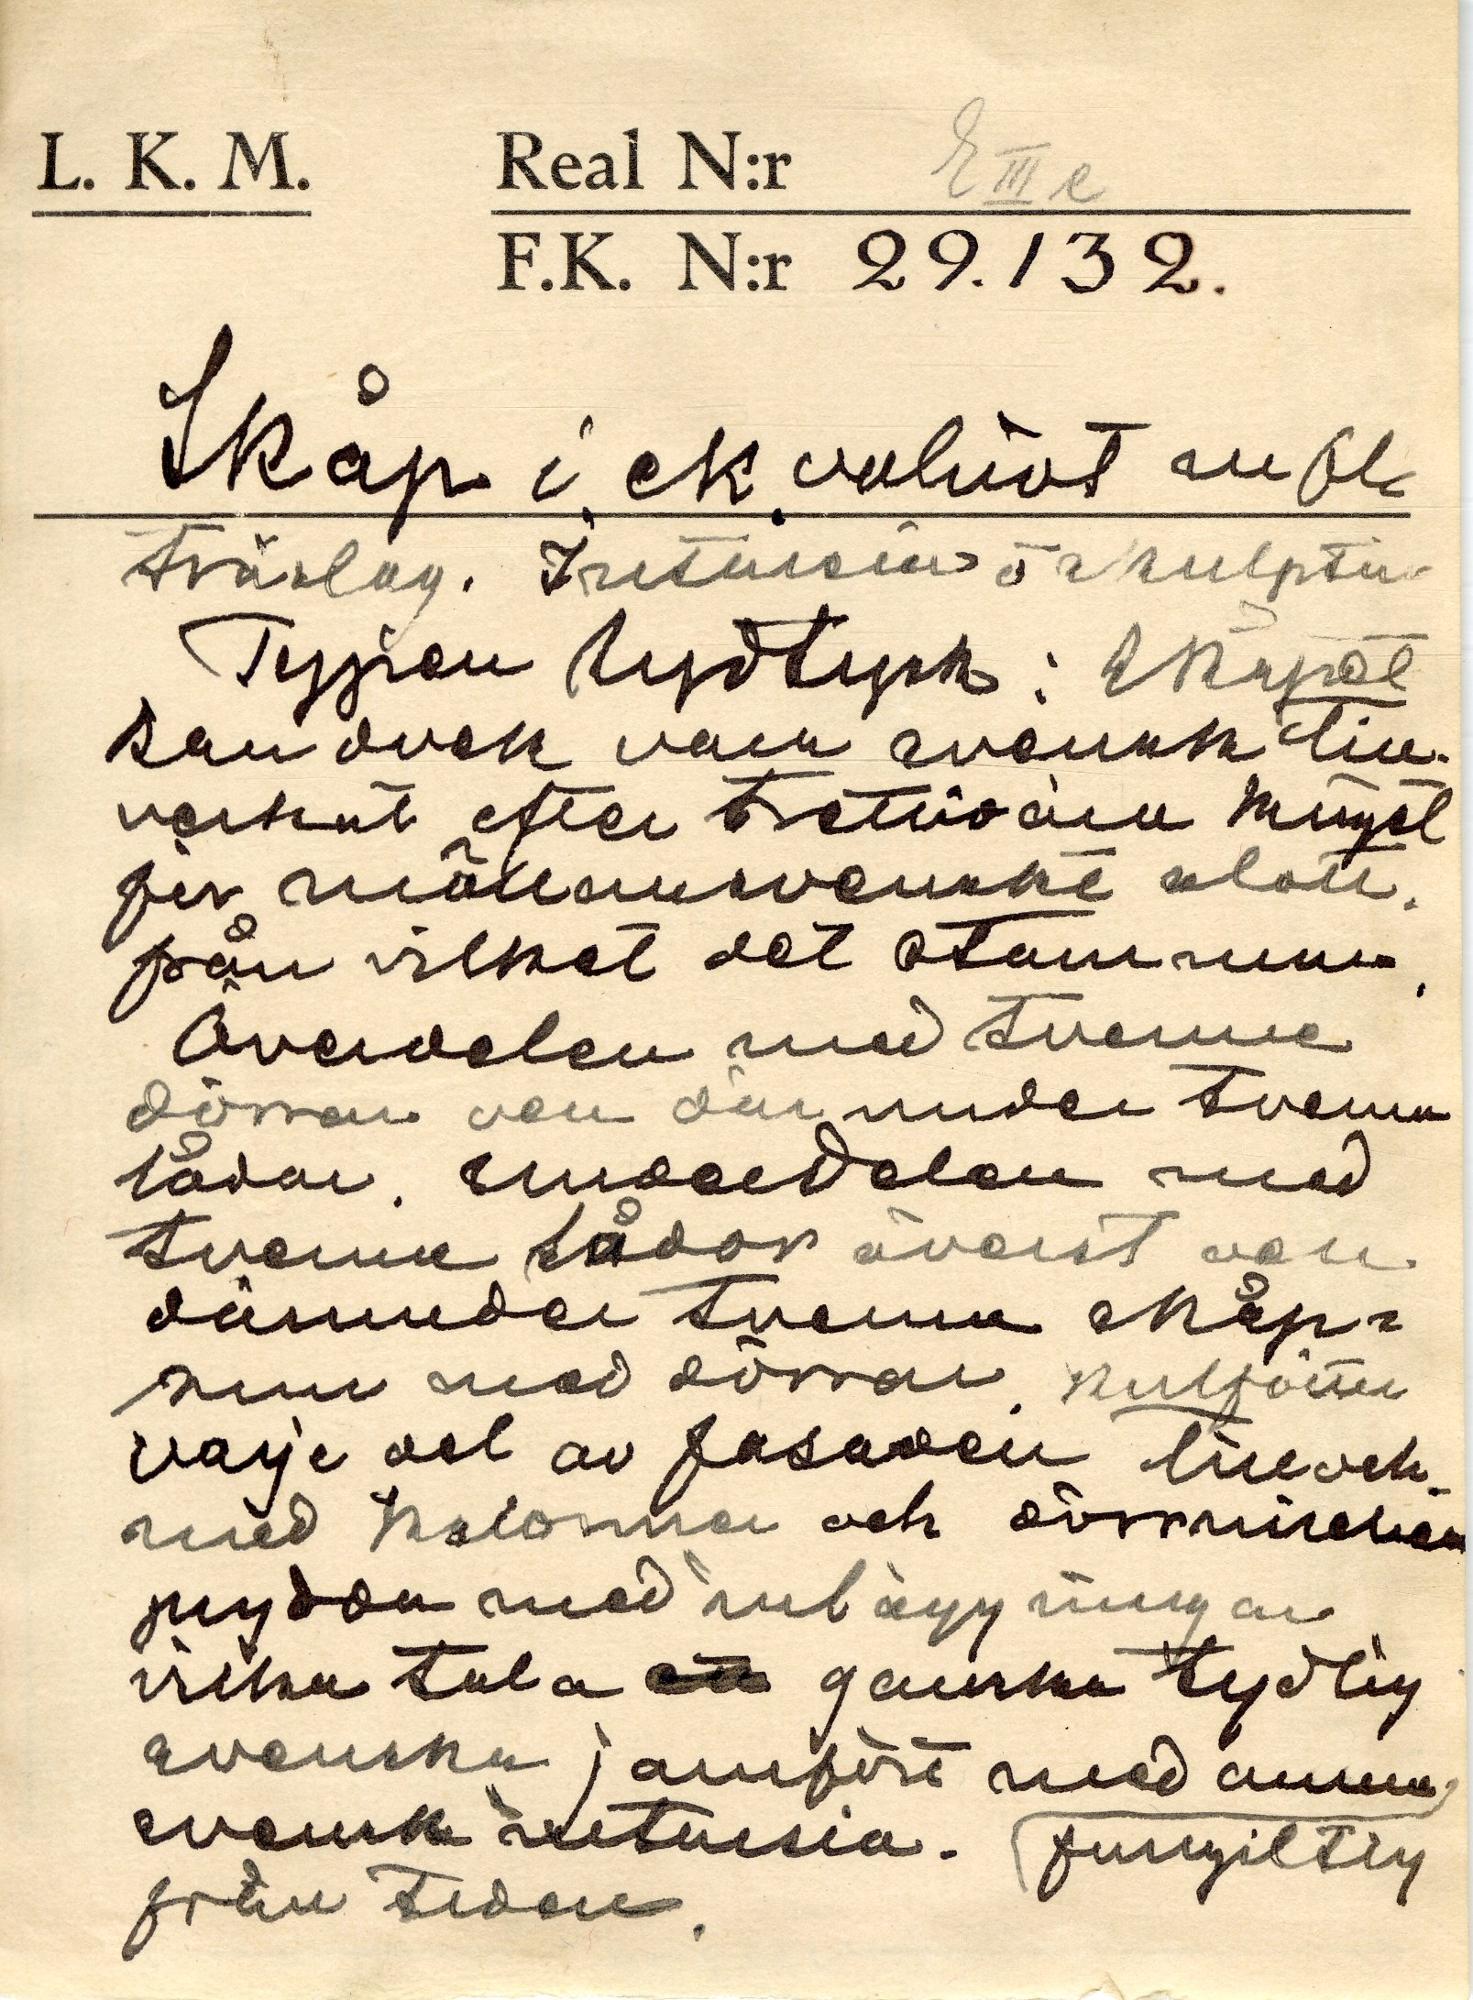 L. K. M. Real N:r E III e
F.K. N:r 29.132.
Skåp i ek, valnöt m fl
träslag. Intarsia o skulptur
Typen sydtysk: Skåpet
kan dock vara svensk till-
verkat efter
för mellansvenskt slott,
från vilket det stammar.
Överdelen med tvenne
dörrar och där under tvenne
lådor. Underdelen med
tvenne lådor överst och
därunder tvenne skåp=
rum med dörrar. Kulfötter
Varje del av fasaden
med kolonner och dörrnischer
prydda med inläggningar
vilka tala ganska tydlig
svenska jämfört med annan
svensk intarsia.
från tiden.